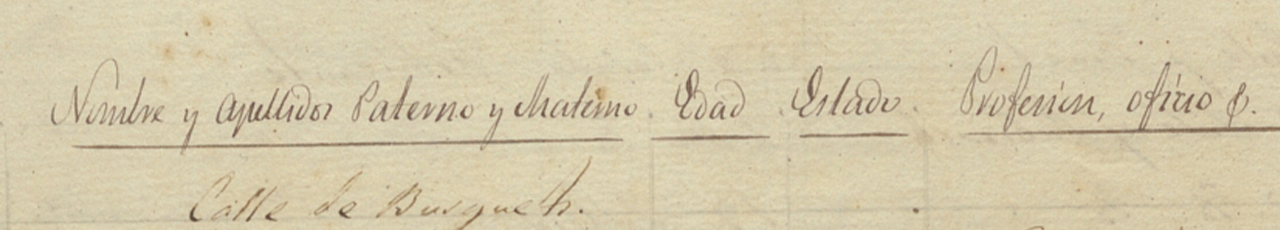 Nombre y apellidos Paterno y Materno. Edad Estado. Profesion, oficio &.
Calle de Busquets.